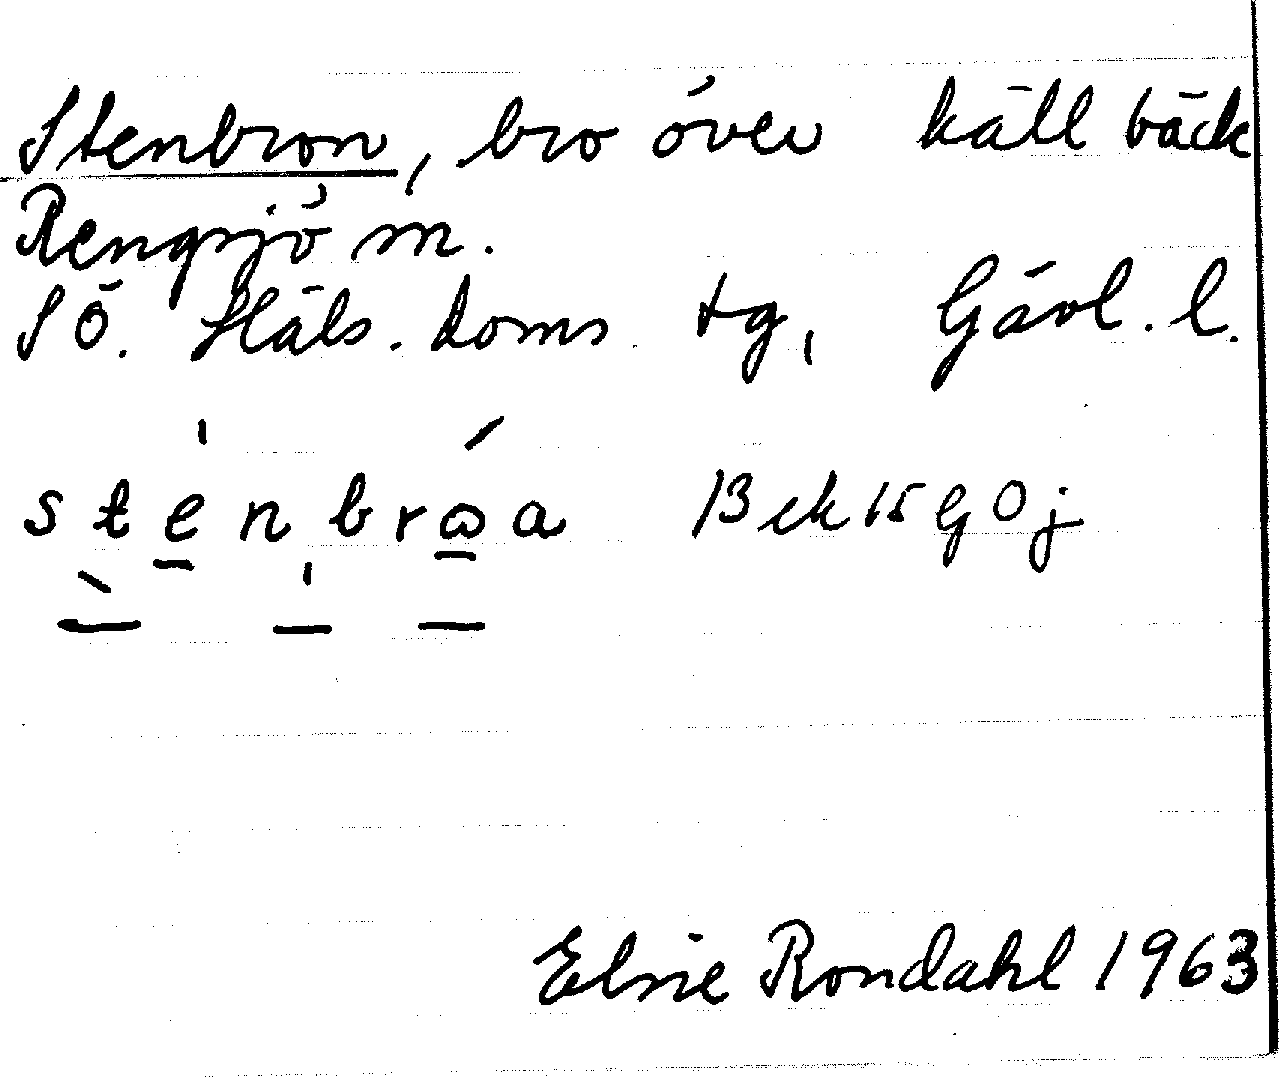 Stenbron, bro över källbäck
Rengsjö sn.
SÖ. Häls. doms tg, Gävl. l.
stenbrωa Bek 15 G O j
Elsie Rondahl 1963